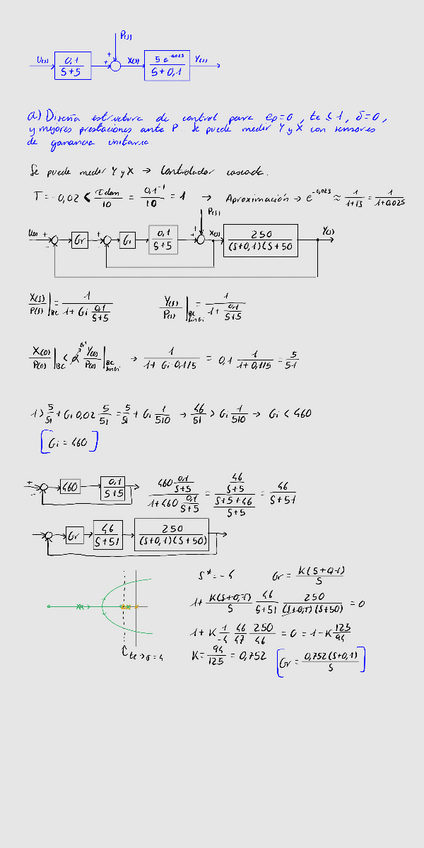 P(s)
U(s) 0,1 / S+5 + + X(s) 5·e^-0,02s / S+0,1 Y(s)
a) Diseña estructura de control para ep=0, te ≤ 1, δ=0,
y mejores prestaciones ante P. Se puede medir Y y X con sensores
de ganancia unitaria
Se puede medir Y y X → Controlador cascada.
T = 0,02 < τdom / 10 = 0,1^-1 / 10 = 1 → Aproximación → e^-0,02s ≈ 1 / 1+Ts = 1 / 1+0,02s
P(s)
U(s) + - Gr + - Gi 0,1 / S+5 + + X(s) 250 / (S+0,1)(S+50) Y(s)
X(s) / P(s) |BC = 1 / 1+Gi 0,1 / S+5 Y(s) / P(s) |BC sin Gi = 1 / 1+ 0,1 / S+5
X(0) / P(0) |BC < α 0,1 Y(0) / P(0) |BC sin Gi → 1 / 1+Gi 0,1/5 = 0,1 1 / 1+0,1/5 = 5 / 51
1 > 5/51 + Gi 0,02 5/51 = 5/51 + Gi 1/510 → 46/51 > Gi 1/510 → Gi < 460
[Gi = 460]
+ - 460 0,1 / S+5 460 0,1 / S+5 / 1+460 0,1 / S+5 = 46 / S+5 / S+5+46 / S+5 = 46 / S+51
+ - Gr 46 / S+51 250 / (S+0,1)(S+50)
S* = -4 Gr = K(S+0,1) / S
1 + K(S+0,1) / S 46 / S+51 250 / (S+0,1)(S+50) = 0
1 + K 1/-4 46/47 250/46 = 0 = 1 - K 125/94
K = 94/125 = 0,752 [Gr = 0,752(S+0,1) / S]
te → σ = 4